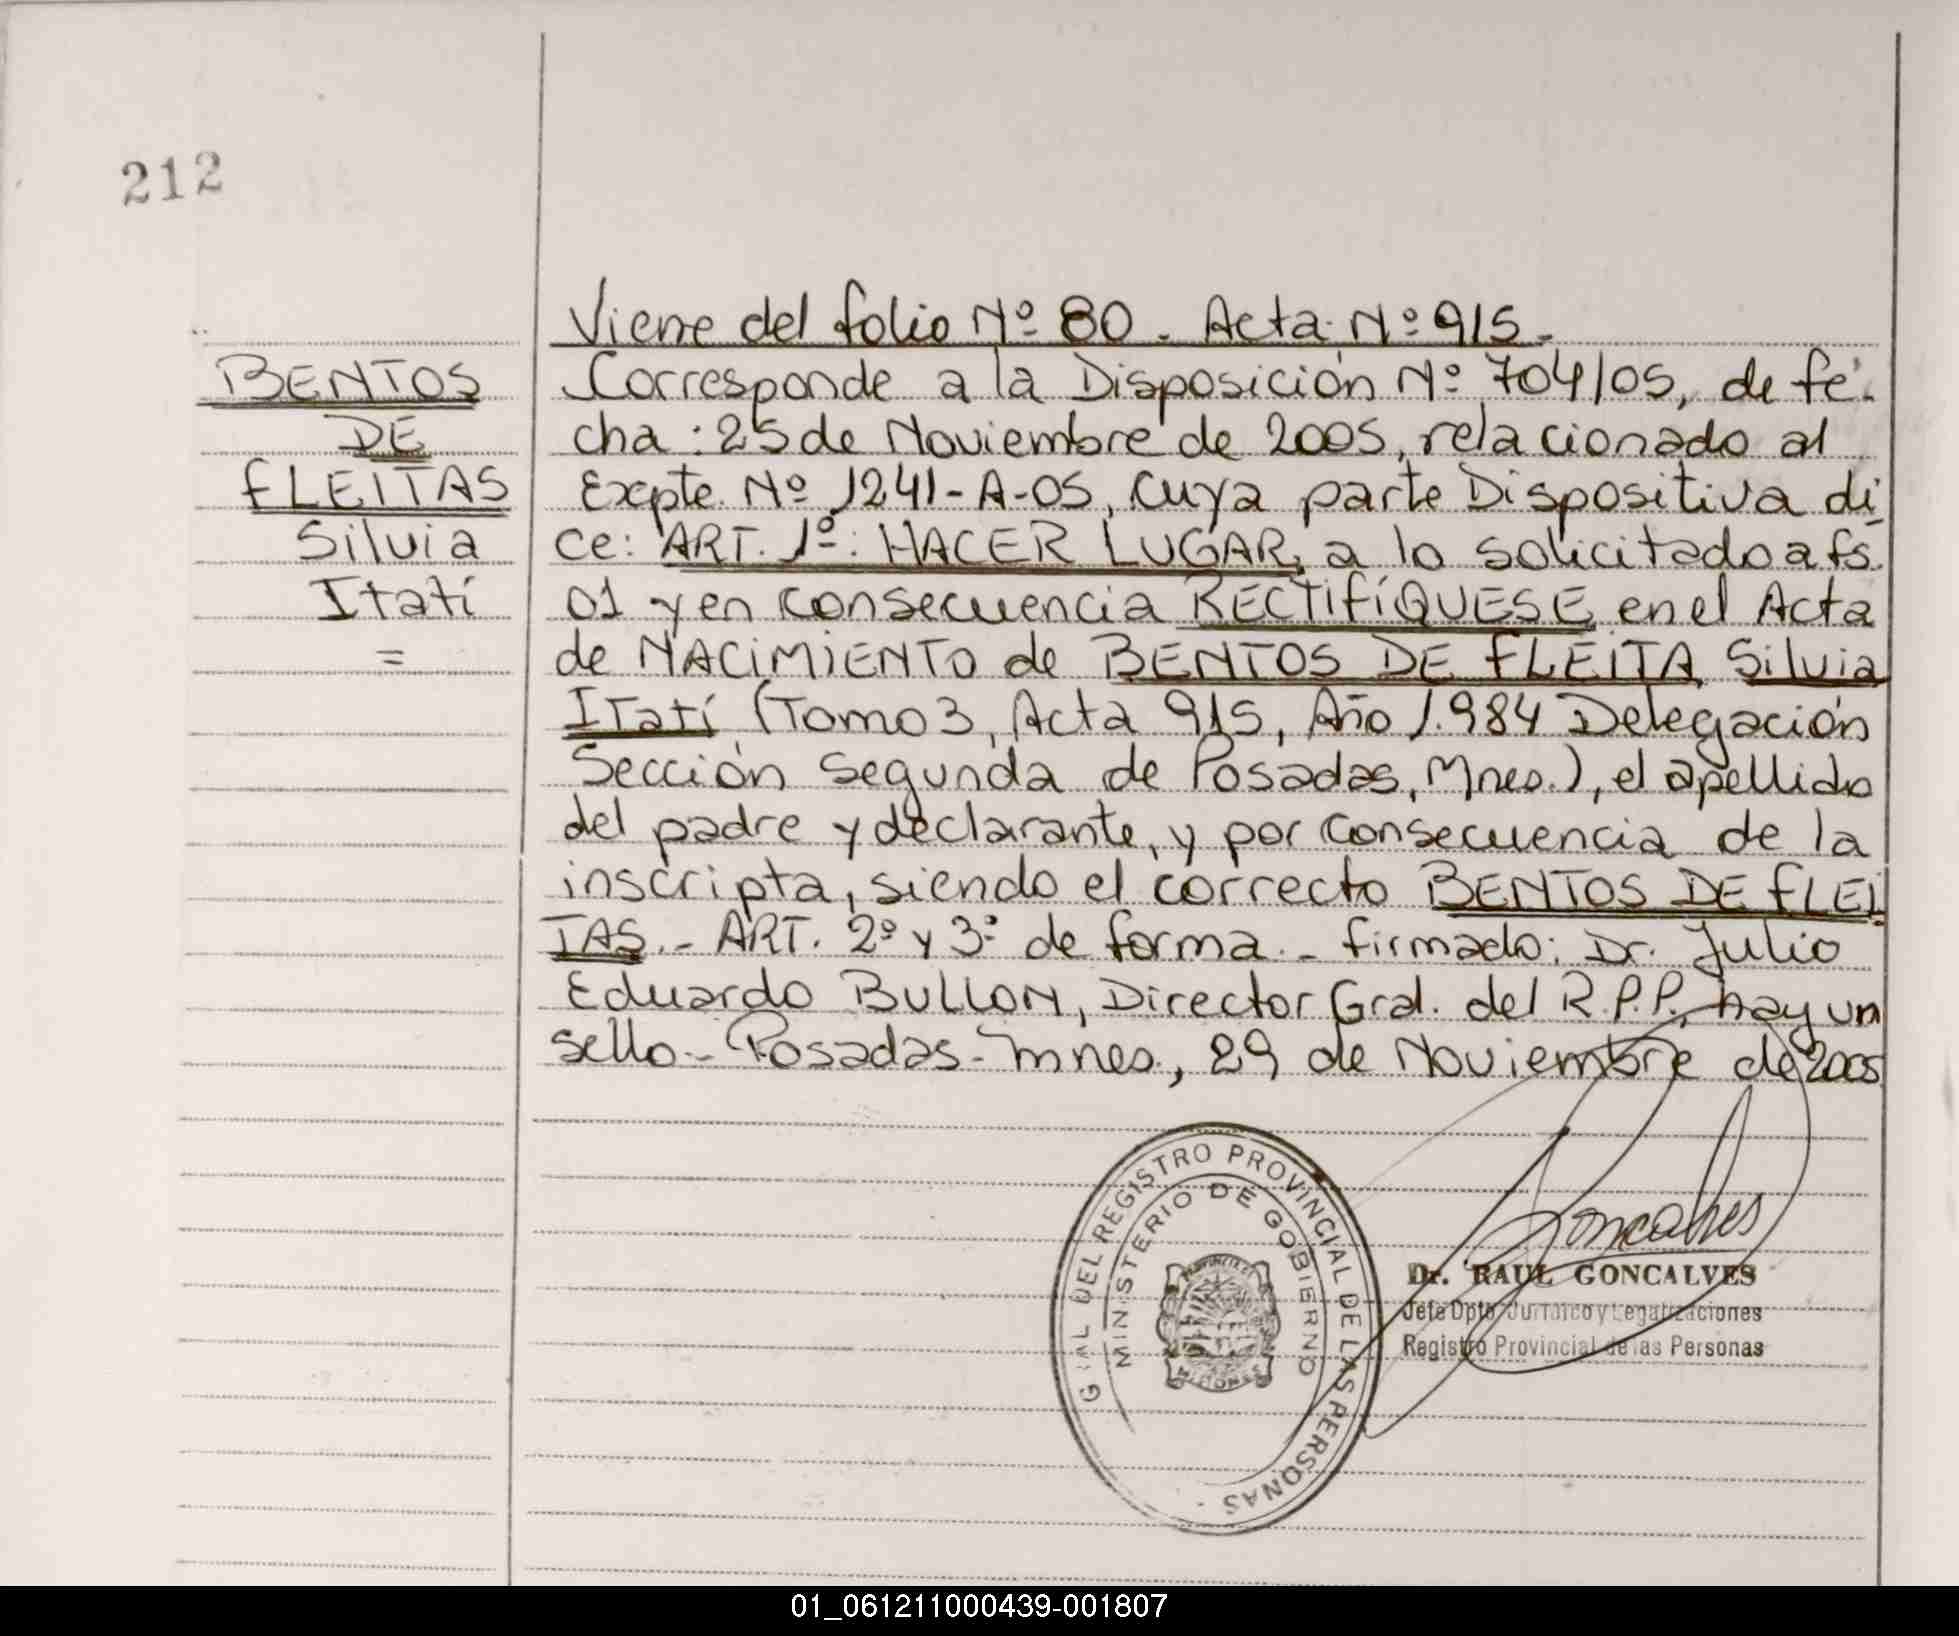 212
BENTOS
DE
FLEITAS
Silvia
Itatí
=
Viene del folio Nº 80 - Acta Nº 915.-
Corresponde a la Disposición Nº 704/05, de fe-
cha: 25 de Noviembre de 2005, relacionado al
Expte. Nº 1241-A-05, cuya parte Dispositiva di-
ce: ART. 1º: HACER LUGAR, a lo solicitado a fs.
01 y en consecuencia RECTIFÍQUESE en el Acta
de NACIMIENTO de BENTOS DE FLEITA Silvia
Itatí (Tomo 3, Acta 915, Año 1.984 Delegación
Sección Segunda de Posadas, Mnes.), el apellido
del padre y declarante, y por consecuencia de la
inscripta, siendo el correcto BENTOS DE FLEI-
TAS.- ART. 2º y 3º de forma.- Firmado: Dr. Julio
Eduardo BULLON, Director Gral. del R.P.P., hay un
sello.- Posadas-Mnes., 29 de Noviembre de 2005
DEL REGISTRO PROVINCIAL DE LAS PERSONAS -
MINISTERIO DE GOBIERNO
PROVINCIA
MISIONES
Goncalves
Dr. RAUL GONCALVES
Jefe Dpto. Jurídico y Legalizaciones
Registro Provincial de las Personas
01_061211000439-001807